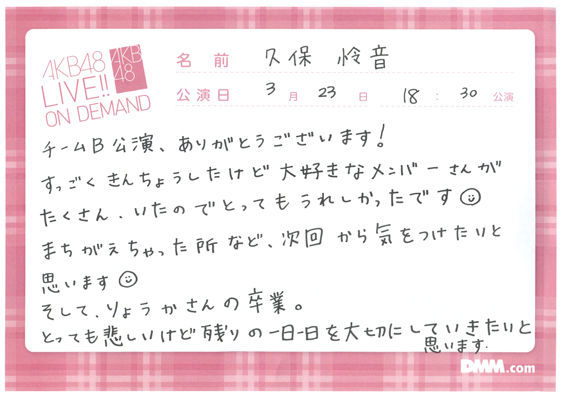 AKB48
LIVE!!
ON DEMAND
AKB
48
名前 久保 怜音
公演日 3月 23日 18:30 公演
チームB公演、ありがとうございます!
すっごくきんちょうしたけど大好きなメンバーさんが
たくさん、いたのでとってもうれしかったです☺
まちがえちゃった所など、次回から気をつけたいと
思います☺
そして、りょうかさんの卒業。
とっても悲しいけど残りの一日一日を大切にしていきたいと
思います.
DMM.com